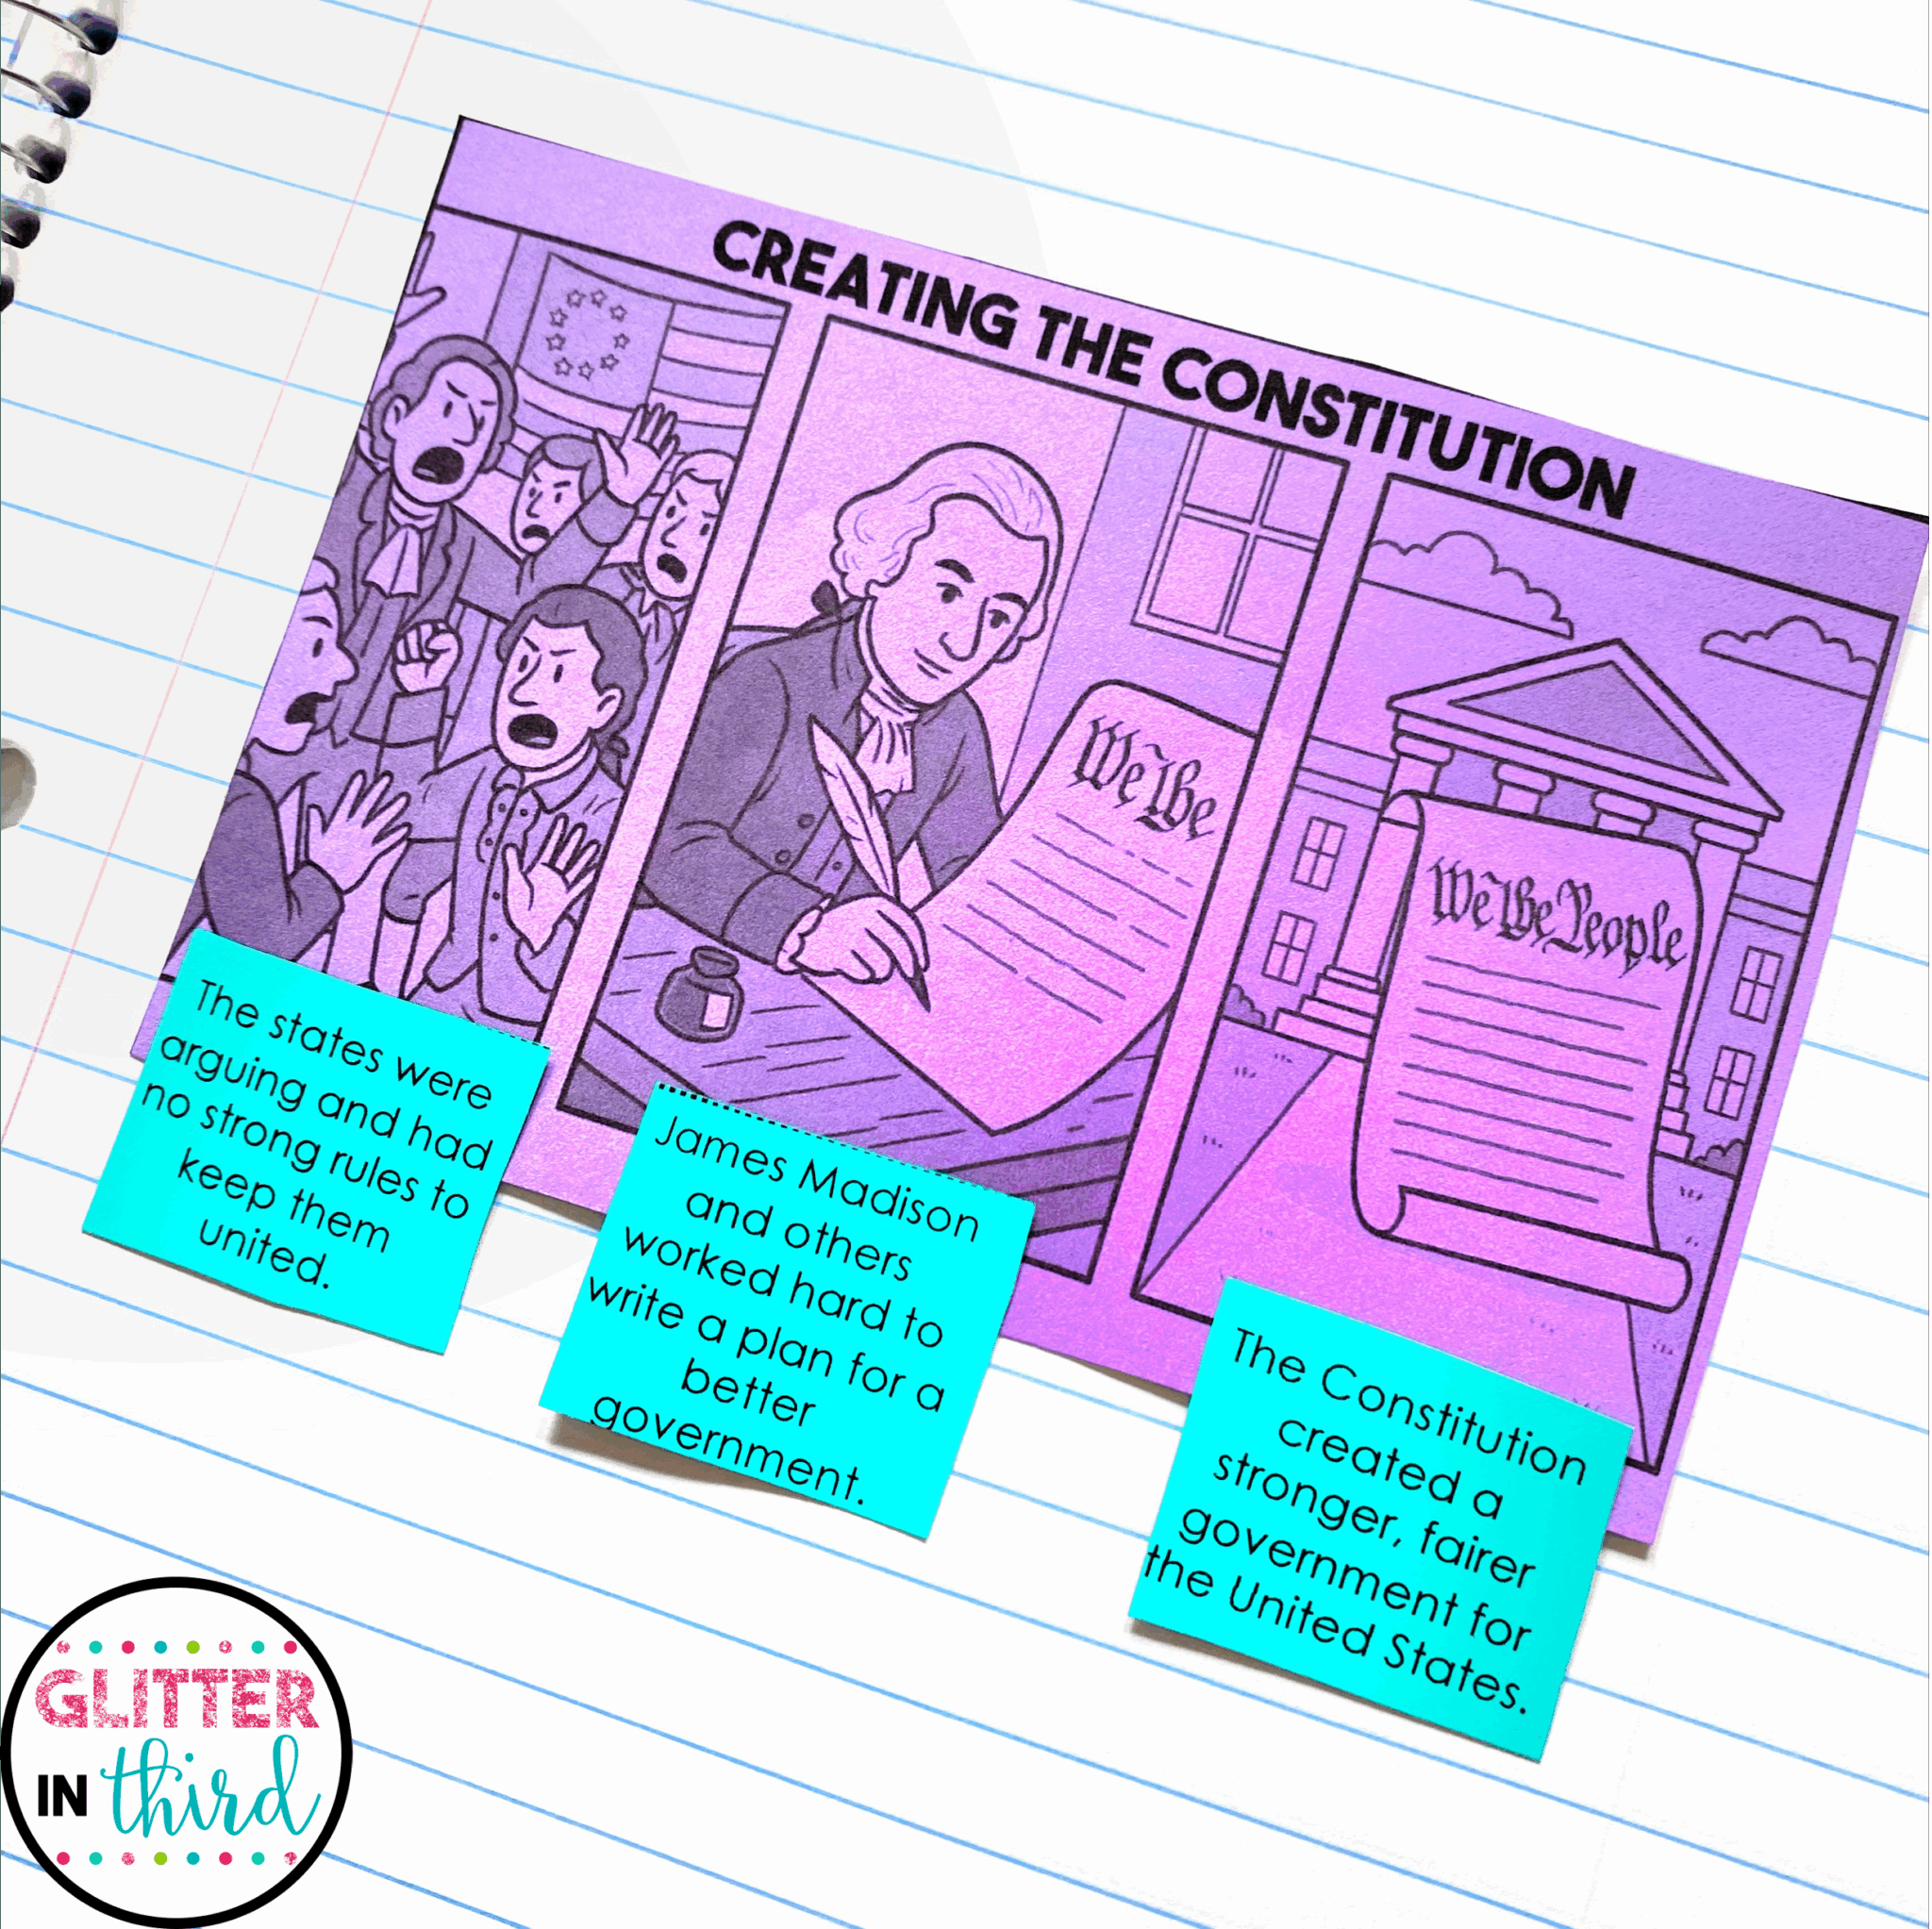 CREATING THE CONSTITUTION
We The
We The People
The states were
arguing and had
no strong rules to
keep them
united.
James Madison
and others
worked hard to
write a plan for a
better
government.
The Constitution
created a
stronger, fairer
government for
the United States.
GLITTER
IN third